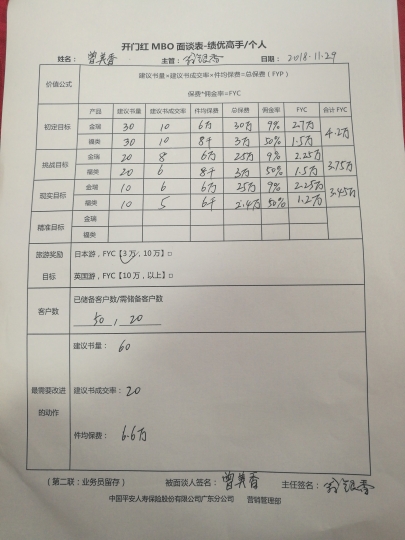 开门红 MBO 面谈表-绩优高手/个人
姓名： 曾美香 主管： 银香 日期： 2018.11.29
价值公式 建议书量×建议书成交率×件均保费=总保费（FYP）
保费*佣金率=FYC
产品 建议书量 建议书成交率 件均保费 总保费 佣金率 FYC 合计 FYC
初定目标 金瑞 30 10 6万 30万 9% 2.7万 4.2万
福类 30 10 8千 3万 50% 1.5万
挑战目标 金瑞 20 8 6万 25万 9% 2.25万 3.75万
福类 20 6 8千 3万 50% 1.5万
现实目标 金瑞 10 6 6万 25万 9% 2.25万 3.45万
福类 10 5 6千 2.4万 50% 1.2万
精准目标 金瑞
福类
旅游奖励 日本游，FYC【3 万，10 万】□
目标 英国游，FYC【10 万，以上】□
客户数 已储备客户数/需储备客户数
50 , 20
建议书量： 60
最需要改进 建议书成交率： 20
的动作
件均保费： 6.6万
（第二联：业务员留存） 被面谈人签名： 曾美香 主任签名： 银香
中国平安人寿保险股份有限公司广东分公司 营销管理部